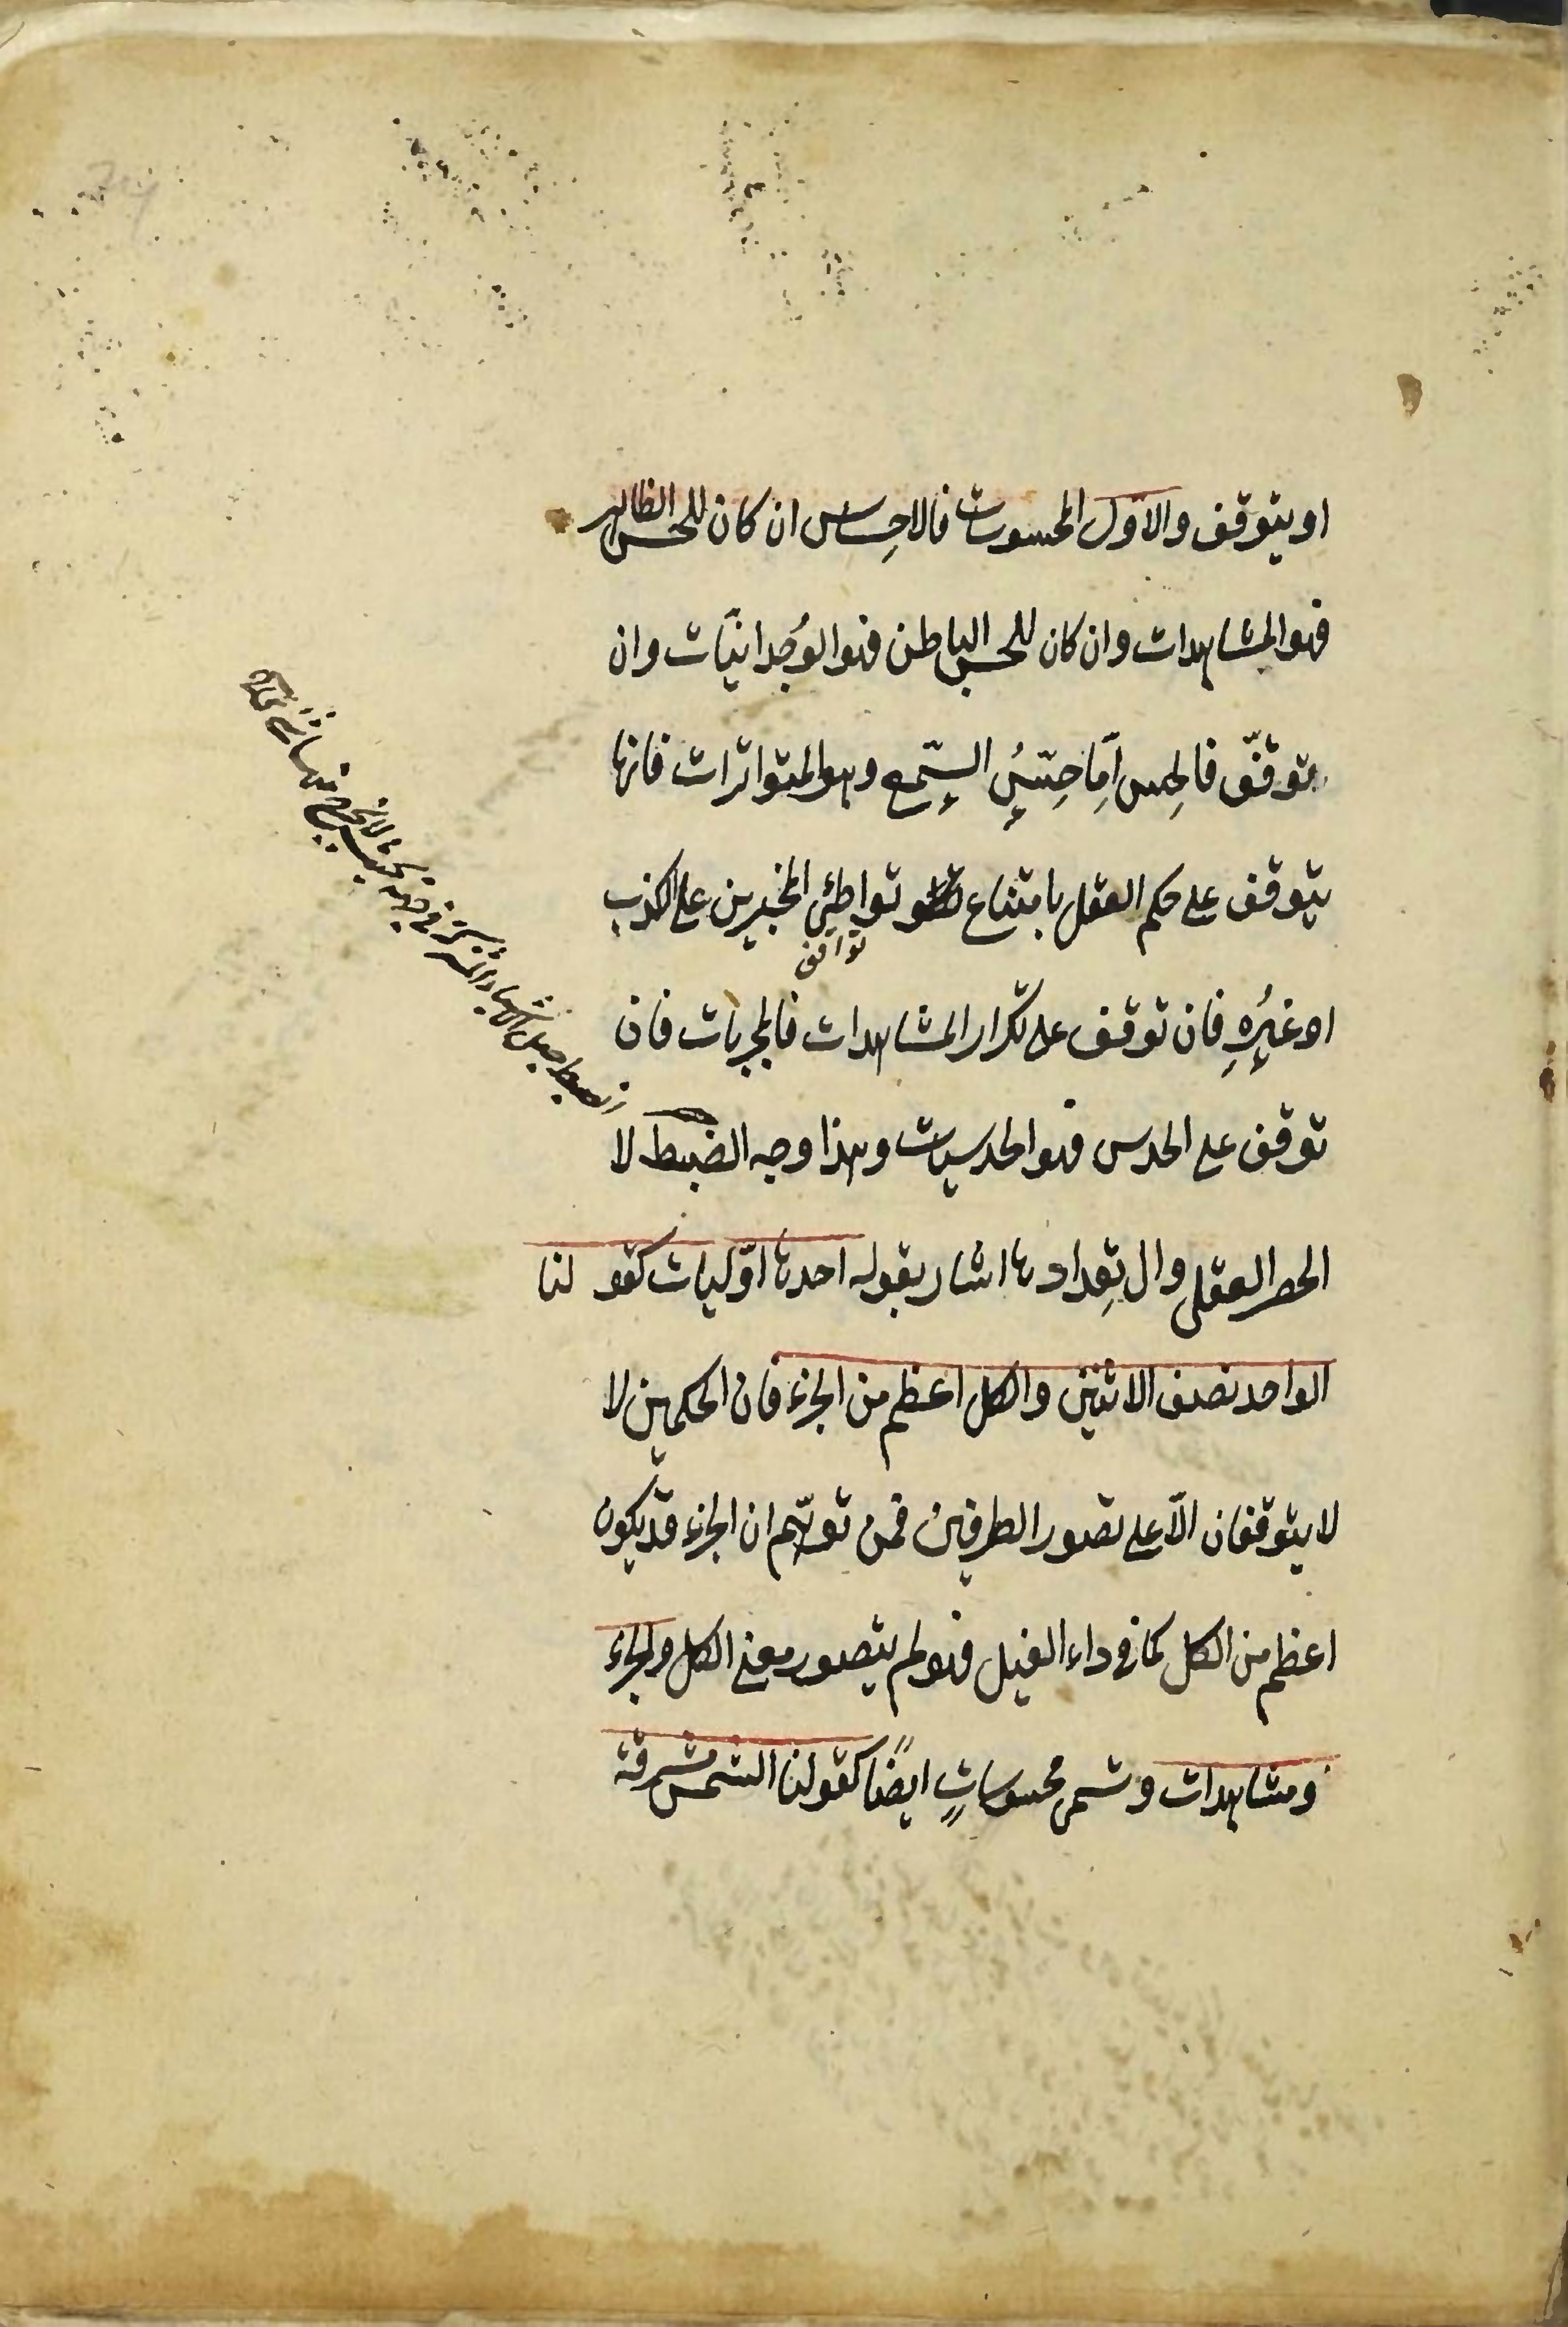 او يتوقف والاول المحسوسات فالاحِساس ان كان للحس الظاهر
فهو المشاهدات وان كان للحس الباطن فهو الوُجدانيّات وان
يتوقّف فالحِس اَمِا حِسّيُ السّمِع وهو المتواترات فانها
يتوقف على حكم العقل بامتناع تواطئِ المخبرين على الكذب
توافق
او غيرُهِ فان توقف على تكرار المشاهدات فالمجربات فان
توقف على الحدس فهو الحدسيات وهذا وجه الضبط لا
الحصر العقلى والى تِعدادها اشار بقوله احدها اوّليات كقو لنا
الواحد نصف الاثنين والكل اعظم من الجزء فان الحكمين لا
لا يتوقفان الاّ على تصور الطرفين فمن توهّم ان الجزء قد يكون
اعظم من الكل كما فى داء الفيل فهو لم يتصور معنى الكل والجزء
ومشاهدات وتسمى محسوساتٍ ايضًا كقولنا الشمس مشرقة